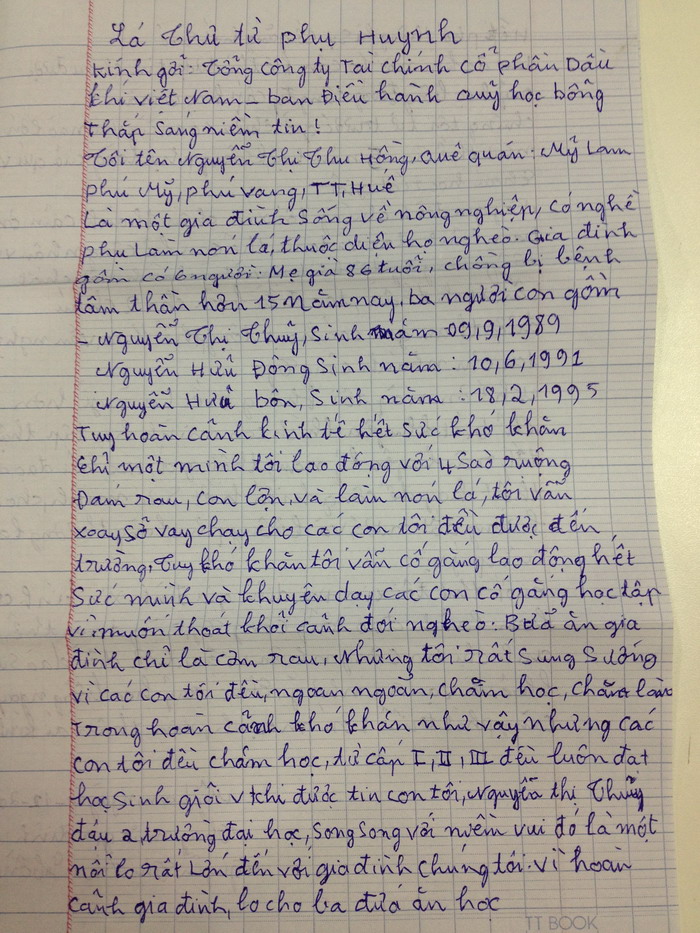 Lá Thư từ phụ Huynh
Kính gởi: Tổng Công ty Tài chính cổ phần Dầu
khí Việt Nam - ban Điều hành quỹ học bổng
Thắp sáng niềm tin!
Tôi tên Nguyễn Thị Thu Hồng, quê quán: Mỹ Lam
Phú Mỹ, phú vang, TT, Huế
Là một gia đình sống về nông nghiệp, có nghề
phụ Làm nón lá, thuộc diện họ nghèo. Gia đình
gồm có 6 người: Mẹ già 86 tuổi, chồng bị bệnh
tâm thần hơn 15 năm nay, ba người con gồm
- Nguyễn Thị Thuỷ, Sinh năm 09,9,1989
Nguyễn Hữu Đông Sinh năm : 10,6,1991
Nguyễn Hữu bôn, Sinh năm : 18,2,1995
Tuy hoàn cảnh kinh tế hết sức khó khăn
chỉ một mình tôi lao động với 4 sào ruộng
Đám rau, con lợn, và làm nón lá, tôi vẫn
xoay sở vay chạy cho các con tôi đều được đến
trường, Tuy khó khăn tôi vẫn cố gắng lao động hết
Sức mình và khuyên dạy các con cố gắng học tập
vì muốn thoát khỏi cảnh đói nghèo. Bữa ăn gia
đình chỉ là cơm rau, nhưng tôi rất sung sướng
vì các con tôi đều, ngoan ngoãn, chăm học, chăm làm
Trong hoàn cảnh khó khăn như vậy nhưng các
con tôi đều chăm học, từ cấp I, II, III đều luôn đạt
học sinh giỏi v khi được tin con tôi, Nguyễn thị Thuỷ
đậu 2 trường đại học, song song với niềm vui đó là một
nỗi lo rất lớn đến với gia đình chúng tôi. vì hoàn
cảnh gia đình, lo cho ba đứa ăn học
TT BOOK